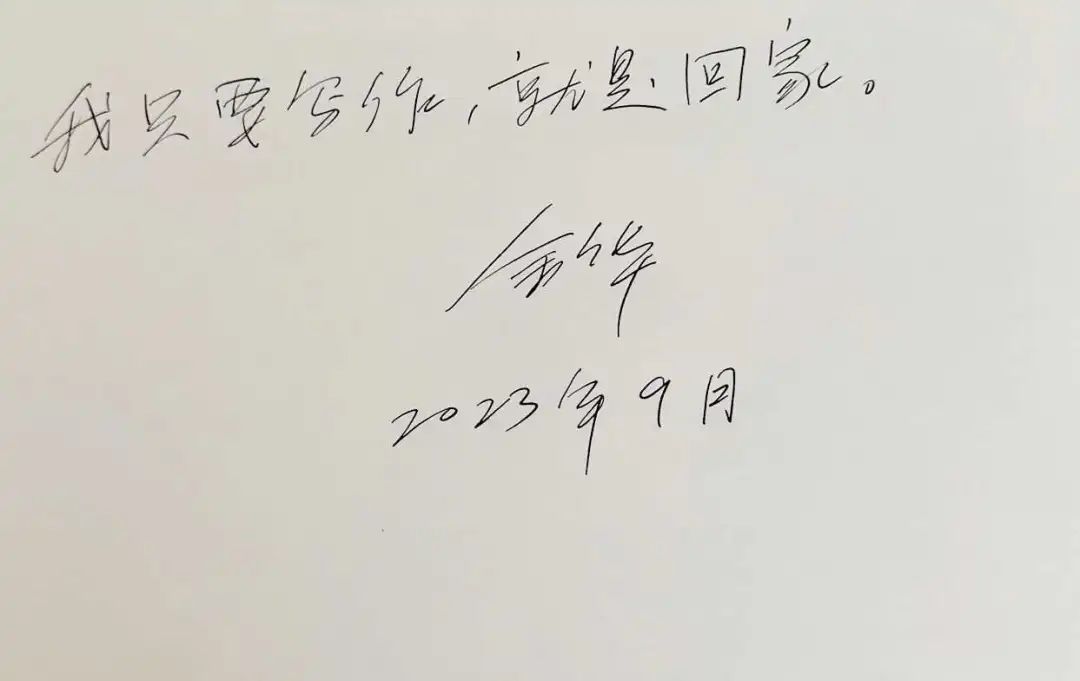 我只要写作，就是回家。
余华
2023年9月